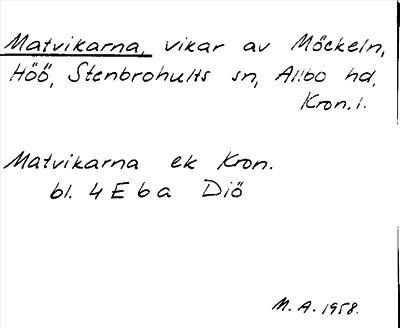 Matvikarna, vikar av Möckeln,
Höö, Stenbrohults sn, Allbo hd,
Kron.l.
Matvikarna ek Kron.
bl. 4 E b a Diö
M. A. 1958.